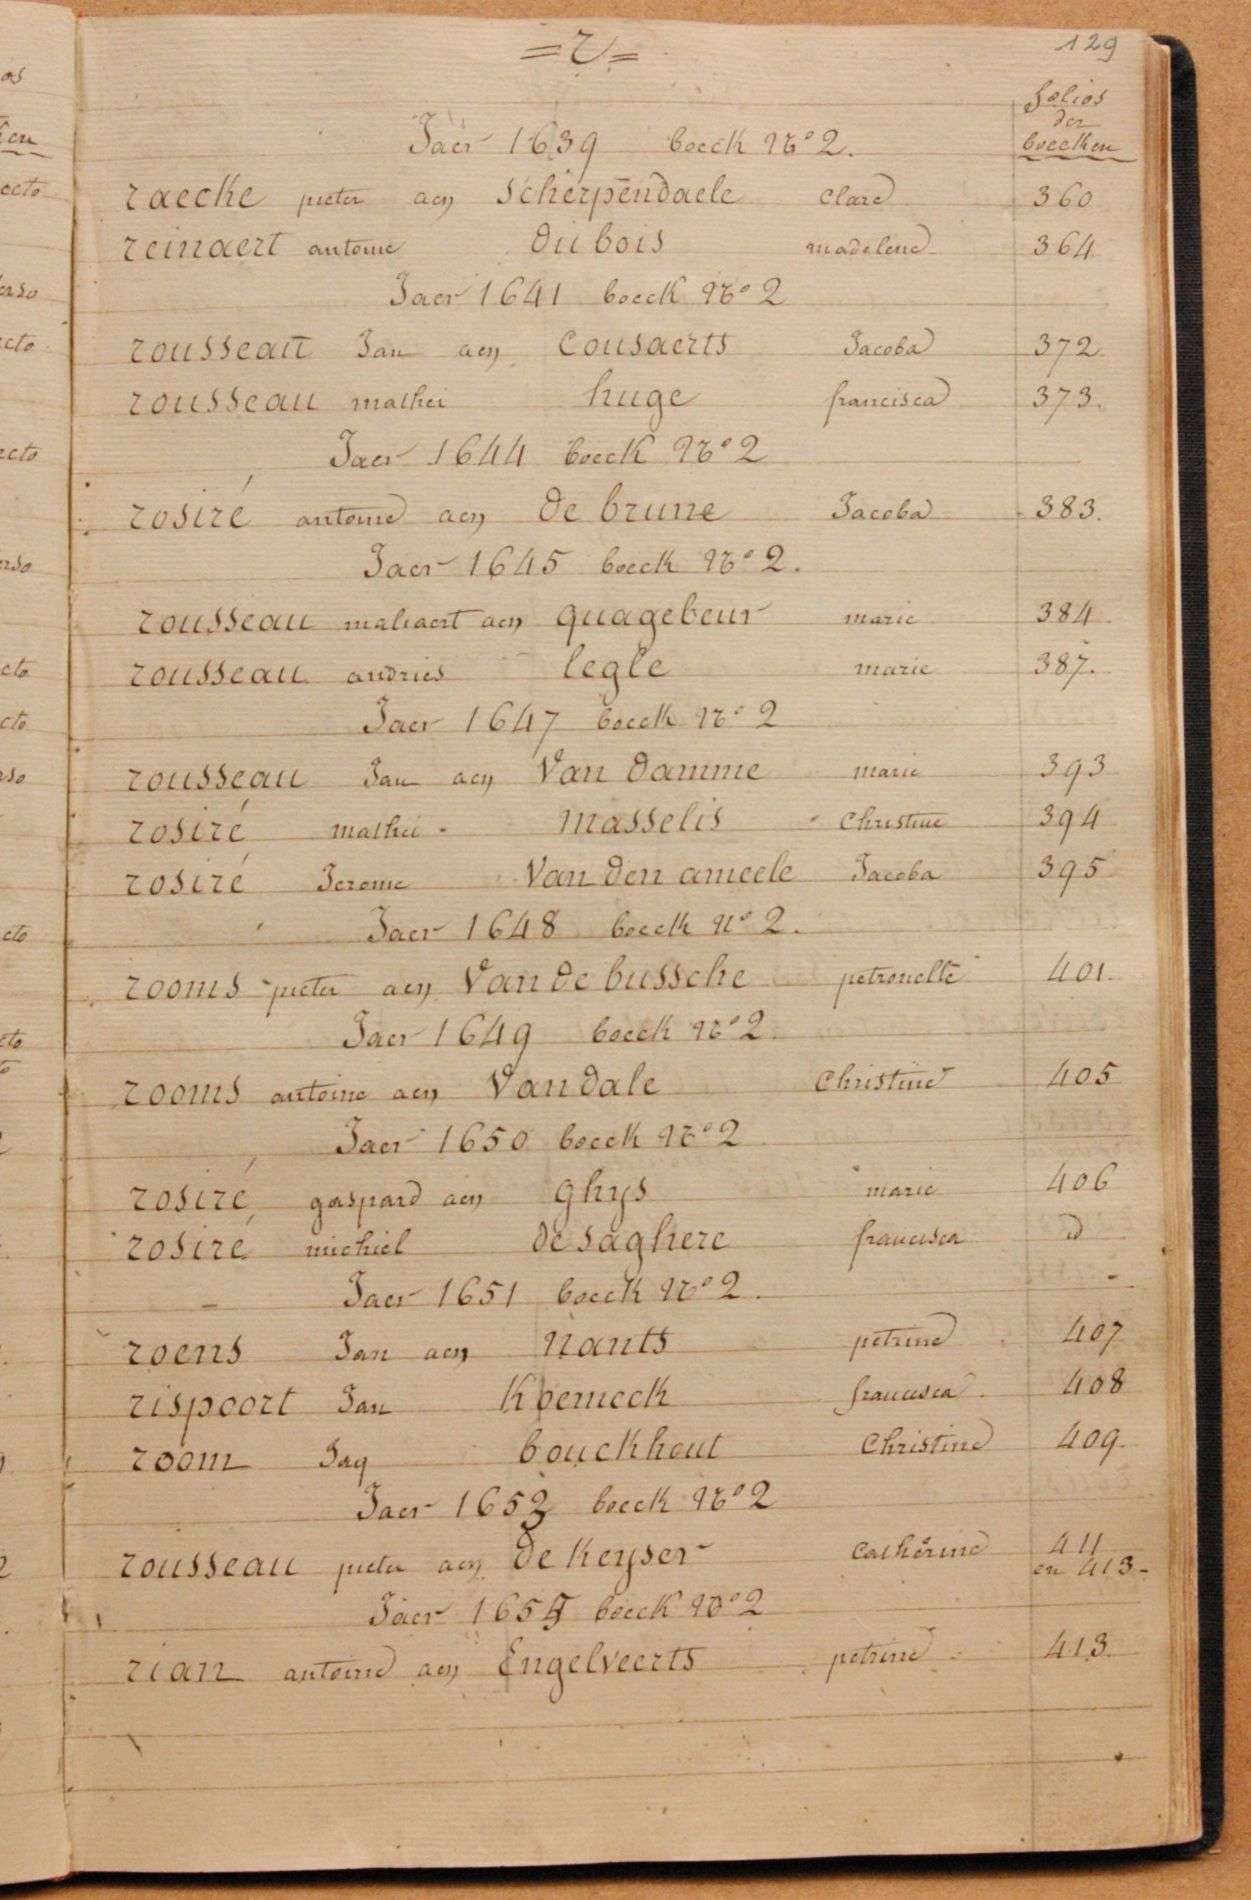 = r =
129
folios
der
boecken
Jaer 1639 boeck No 2.
raecke pieter aen scherpendaele clare 360
reinaert antoine du bois madelene 364
Jaer 1641 boeck No 2
rousseau Jan aen Cousaerts Jacoba 372
rousseau mathei huge francisca 373.
Jaer 1644 boeck No 2
rosiré antoine aen de brune Jacoba 383.
Jaer 1645 boeck No 2.
rousseau maliaert aen quagebeur marie 384
rousseau andries legle marie 387.
Jaer 1647 boeck No 2
rousseau Jan aen Van damme marie 393
rosiré mathei masselis Christine 394
rosiré Jerome Van den ameele Jacoba 395
Jaer 1648 boeck no 2.
rooms pieter aen Van de bussche petronelle 401.
Jaer 1649 boeck No 2.
rooms antoine aen Van dale Christine 405
Jaer 1650 boeck No 2
rosiré gaspard aen ghys marie 406
rosiré michiel de saghere francisca d
Jaer 1651 boeck No 2.
roens Jan aen nants petrine 407
rispoort Jan Koemeck francisca 408
room Jaq bouckhout Christine 409.
Jaer 1653 boeck No 2
rousseau pieter aen de Keyser Catherine 411
en 413-
Jaer 1654 boeck No 2
rian antoine aen Engelveerts petrine 413.